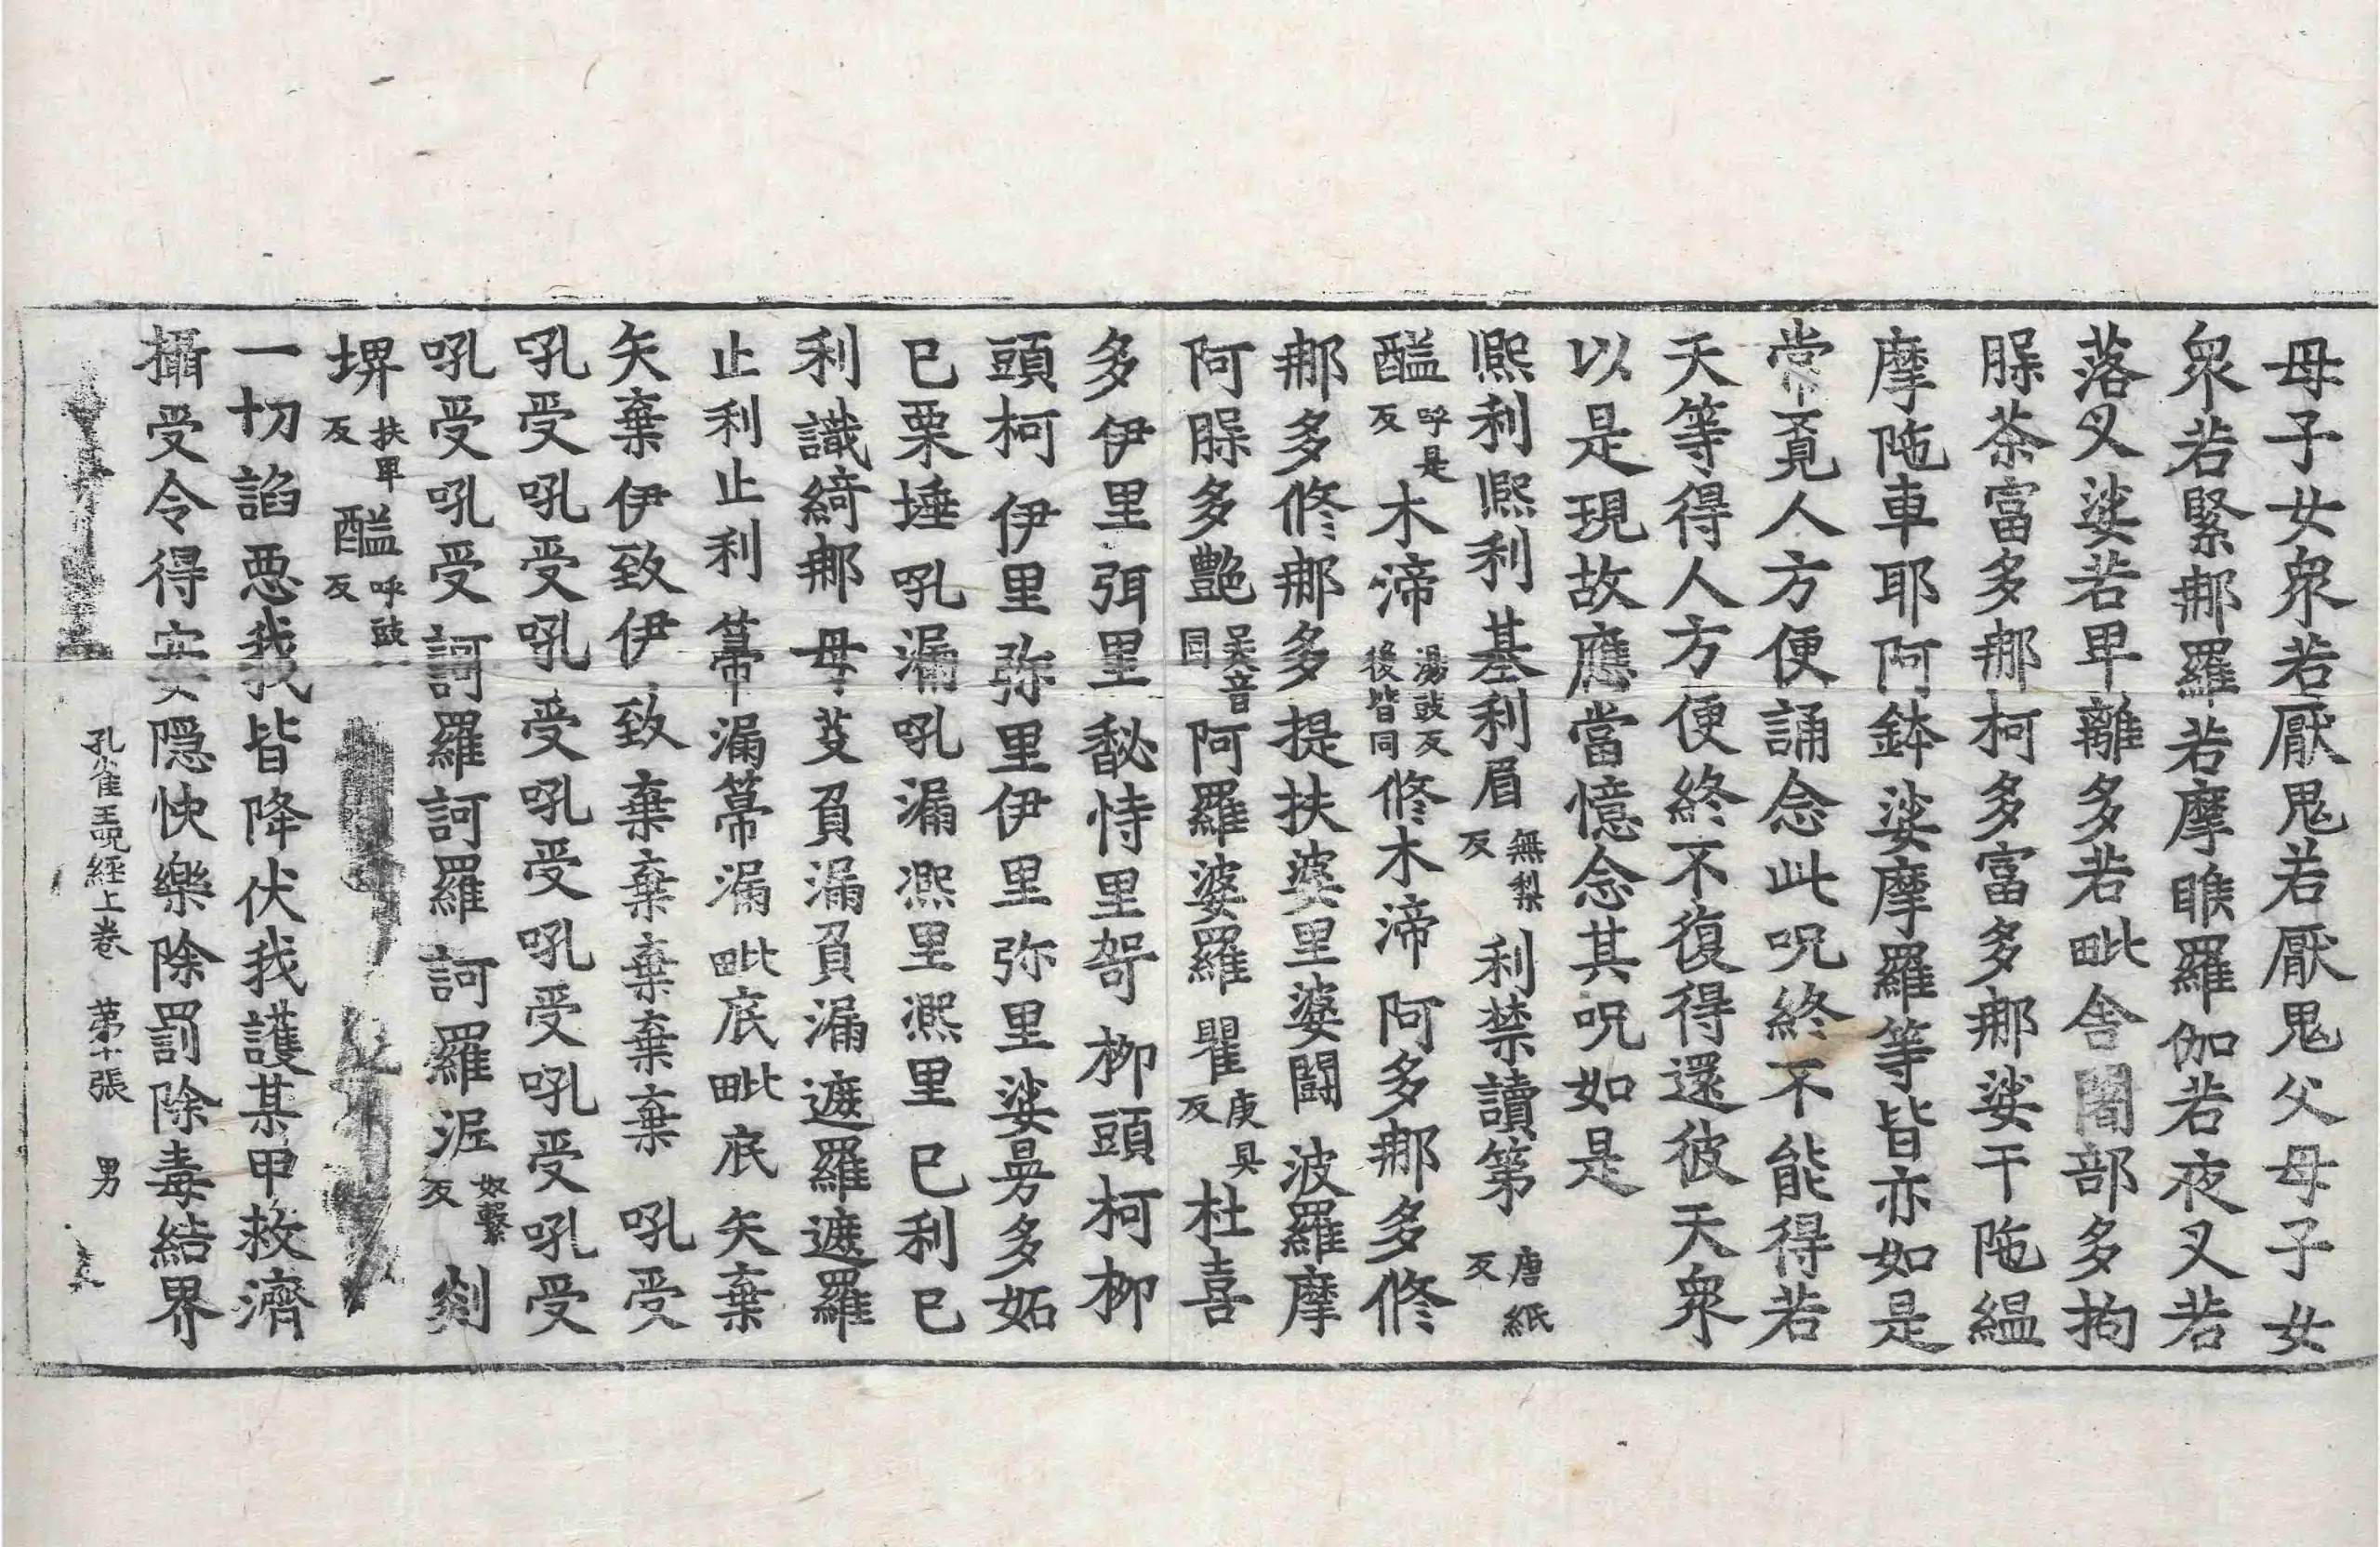 母子女衆若厭鬼若厭鬼父母子女
衆若緊那羅若摩睺羅伽若夜叉若
落叉娑若卑離多若毗舍闍部多拘
脲荼富多那柯多富多那娑干陁緼
摩陁車耶阿鉢娑摩羅等皆亦如是
常覓人方便誦念此呪終不能得若
天等得人方便終不復得還彼天衆
以是現故應當憶念其呪如是
熈利熈利基利眉無梨反利禁讀第唐紙反
醯呼是反木渧湯豉反後皆同修木渧阿多那多修
那多修那多提扶婆里婆闘波羅摩
阿脲多艶吴音同阿羅婆羅瞿庾具反杜喜
多伊里弭里馝恃里哿栁頭柯栁
頭柯伊里弥里伊里弥里娑昙多妬
已栗埵吼漏吼漏凞里凞里已利已
利識綺那母芰負漏負漏遮羅遮羅
止利止利篳漏篳漏毗底毗底矢棄
矢棄伊致伊致棄棄棄棄棄吼受
吼受吼受吼受吼受吼受吼受吼受
吼受吼受訶羅訶羅訶羅泥奴繫反剡
堺扶卑反醯呼豉反
一切諂悪我皆降伏我護某甲救濟
攝受令得安隱快樂除罰除毒結界
孔雀王呪經上卷 苐十張 男